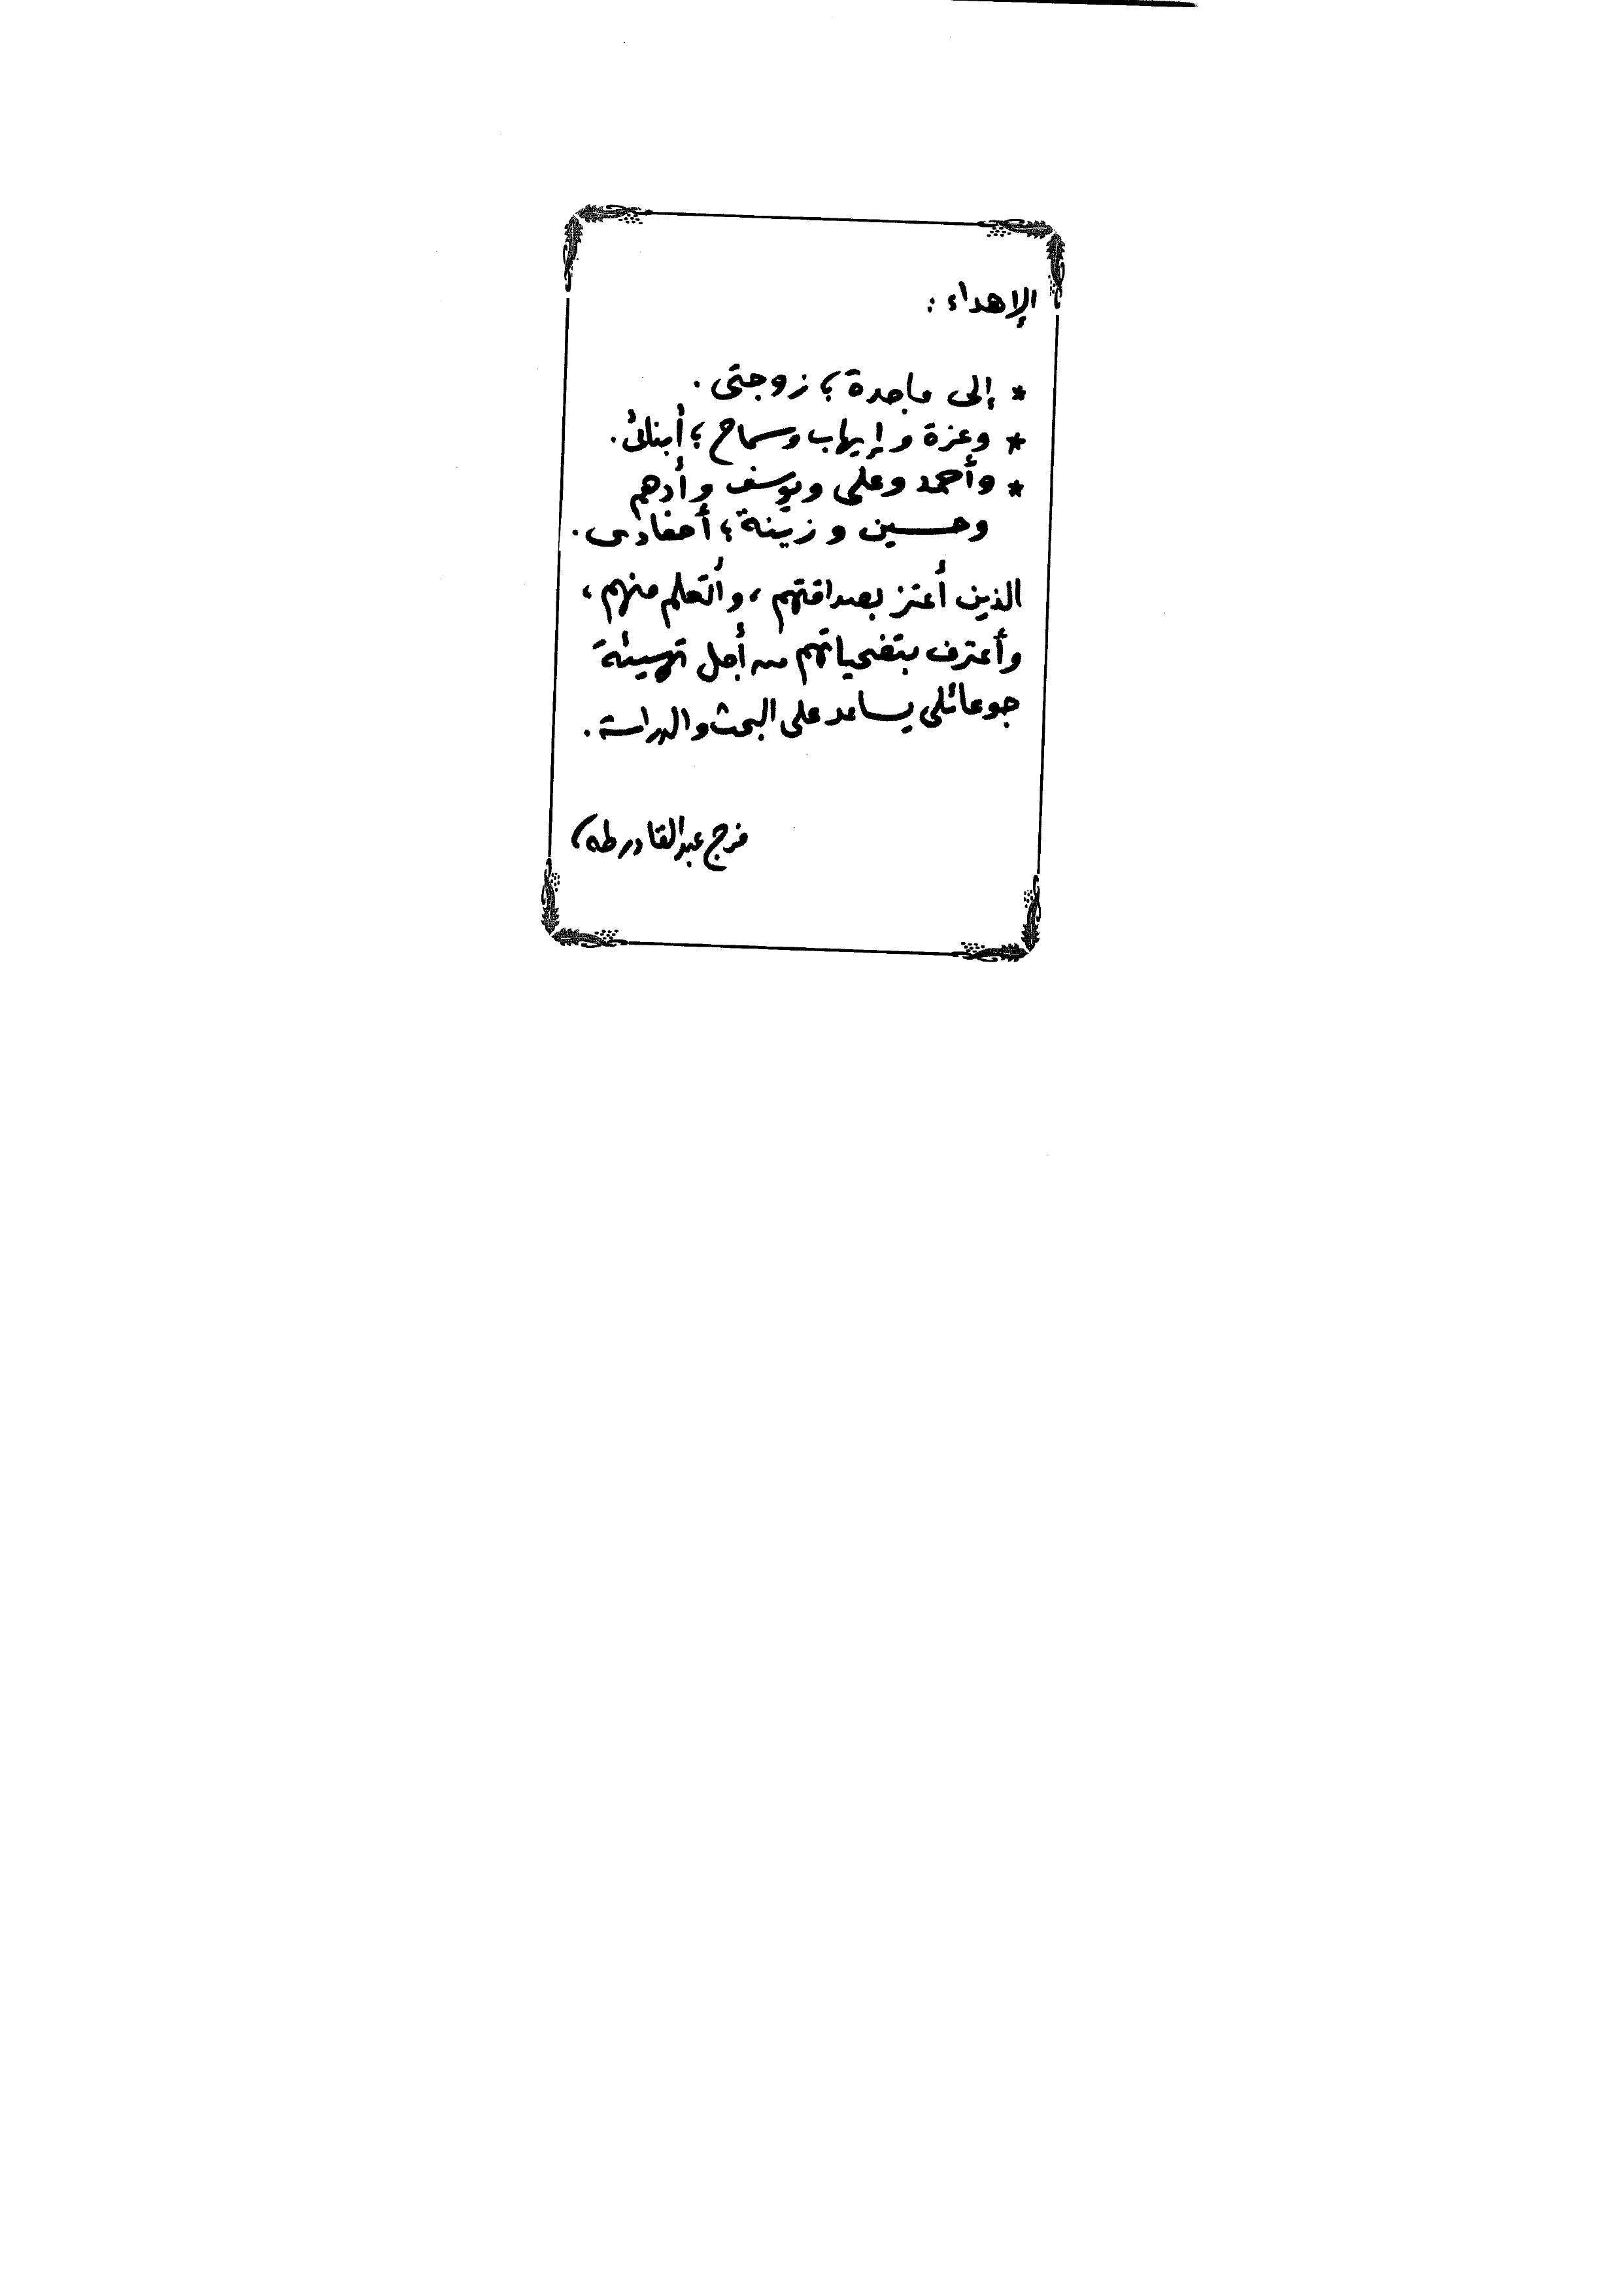 الإهداء :
* إلى ماجدة ؛ زوجتى .
* وعزة وإيهاب وسماح ؛ أبنائى .
* وأحمد وعلى ويوسف وأدهم
وحسين وزينة ؛ أحفادى .
الذين أعتز بصداقتهم ، وأتعلم منهم ،
وأعترف بتضحياتهم من أجل تهيئة
جو عائلى يساعد على البحث والدراسة .
فرج عبد القادر طه